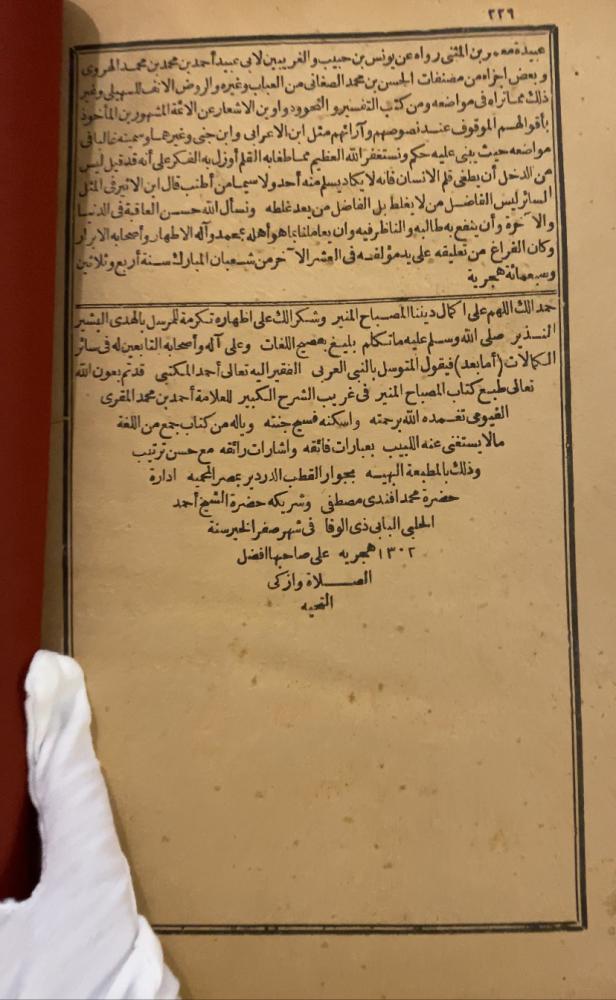 ٢٢٩
عبيدة معمر بن المثنى رواه عن يونس بن حبيب والغريبين لابى عبيد أحمد بن محمد بن محمد الهروى
وبعض اجزاء من مصنفات الحسن بن محمد الصغانى من العباب وغيره والروض الانف للسهيلى وغير
ذلك مما تراه فى مواضعه ومن كتب التفسير والنحو ودواوين الاشعار عن الائمة المشهورين المأخوذ
بأقوالهم الموقوف عند نصوصهم وآرائهم مثل ابن الاعرابى وابن جنى وغيرهما وسميته غالبا فى
مواضعه حيث يبنى عليه حكم ونستغفر الله العظيم مما طغابه القلم أوزل به الفكر على أنه قد قيل ليس
من الدخل أن يطغى قلم الانسان فانه لا يكاد يسلم منه أحد ولا سيما من أطنب قال ابن الاثير فى المثل
السائر ليس الفاضل من لا يغلط بل الفاضل من يعد غلطه ونسأل الله حسن العاقبة فى الدنيا
والآخرة وأن ينفع به طالبه والناظر فيه وان يعاملنا بما هو أهله بمحمد وآله الاطهار وأصحابه الابرار
وكان الفراغ من تعليقه على يد مؤلفه فى العشر الآخر من شعبان المبارك سنة أربع وثلاثين
وسبعمائة هجرية
حمدا لك اللهم على اكمال ديننا المصباح المنير وشكرا لك على اظهاره تكرمة للمرسل بالهدى البشير
النذير صلى الله وسلم عليه ما تكلم بليغ بفصيح اللغات وعلى آله وأصحابه التابعين له فى سائر
الكمالات (أما بعد) فيقول المتوسل بالنبى العربى الفقير اليه تعالى أحمد المكتبى قد تم بعون الله
تعالى طبع كتاب المصباح المنير فى غريب الشرح الكبير للعلامة أحمد بن محمد المقرى
الفيومى تغمده الله برحمته واسكنه فسيح جنته وياله من كتاب جمع من اللغة
مالا يستغنى عنه اللبيب بعبارات فائقه واشارات رائقه مع حسن ترتيب
وذلك بالمطبعة البهيسه بجوار القطب الدردير بمصر المحميه ادارة
حضرة محمد افندى مصطفى وشريكه حضرة الشيخ أحمد
الحلبى البابى ذى الوفا فى شهر صفر الخير سنة
١٣٠٢ هجريه على صاحبها افضل
الصلاة وازكى
التحيه